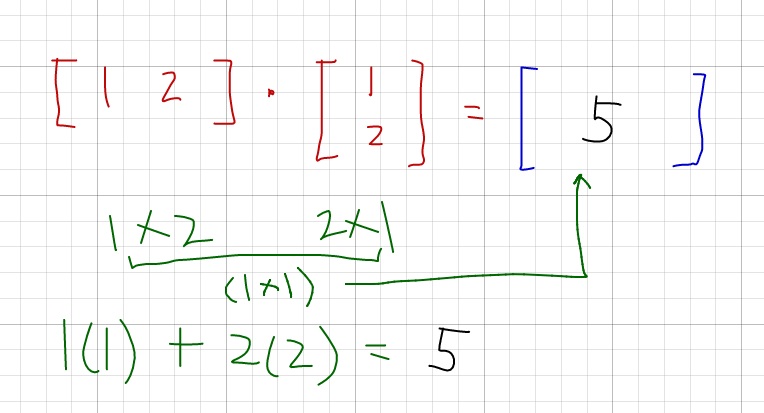 [ 1 2 ] · [ 1 2 ] = [ 5 ]
1×2 2×1
(1×1)
1(1) + 2(2) = 5